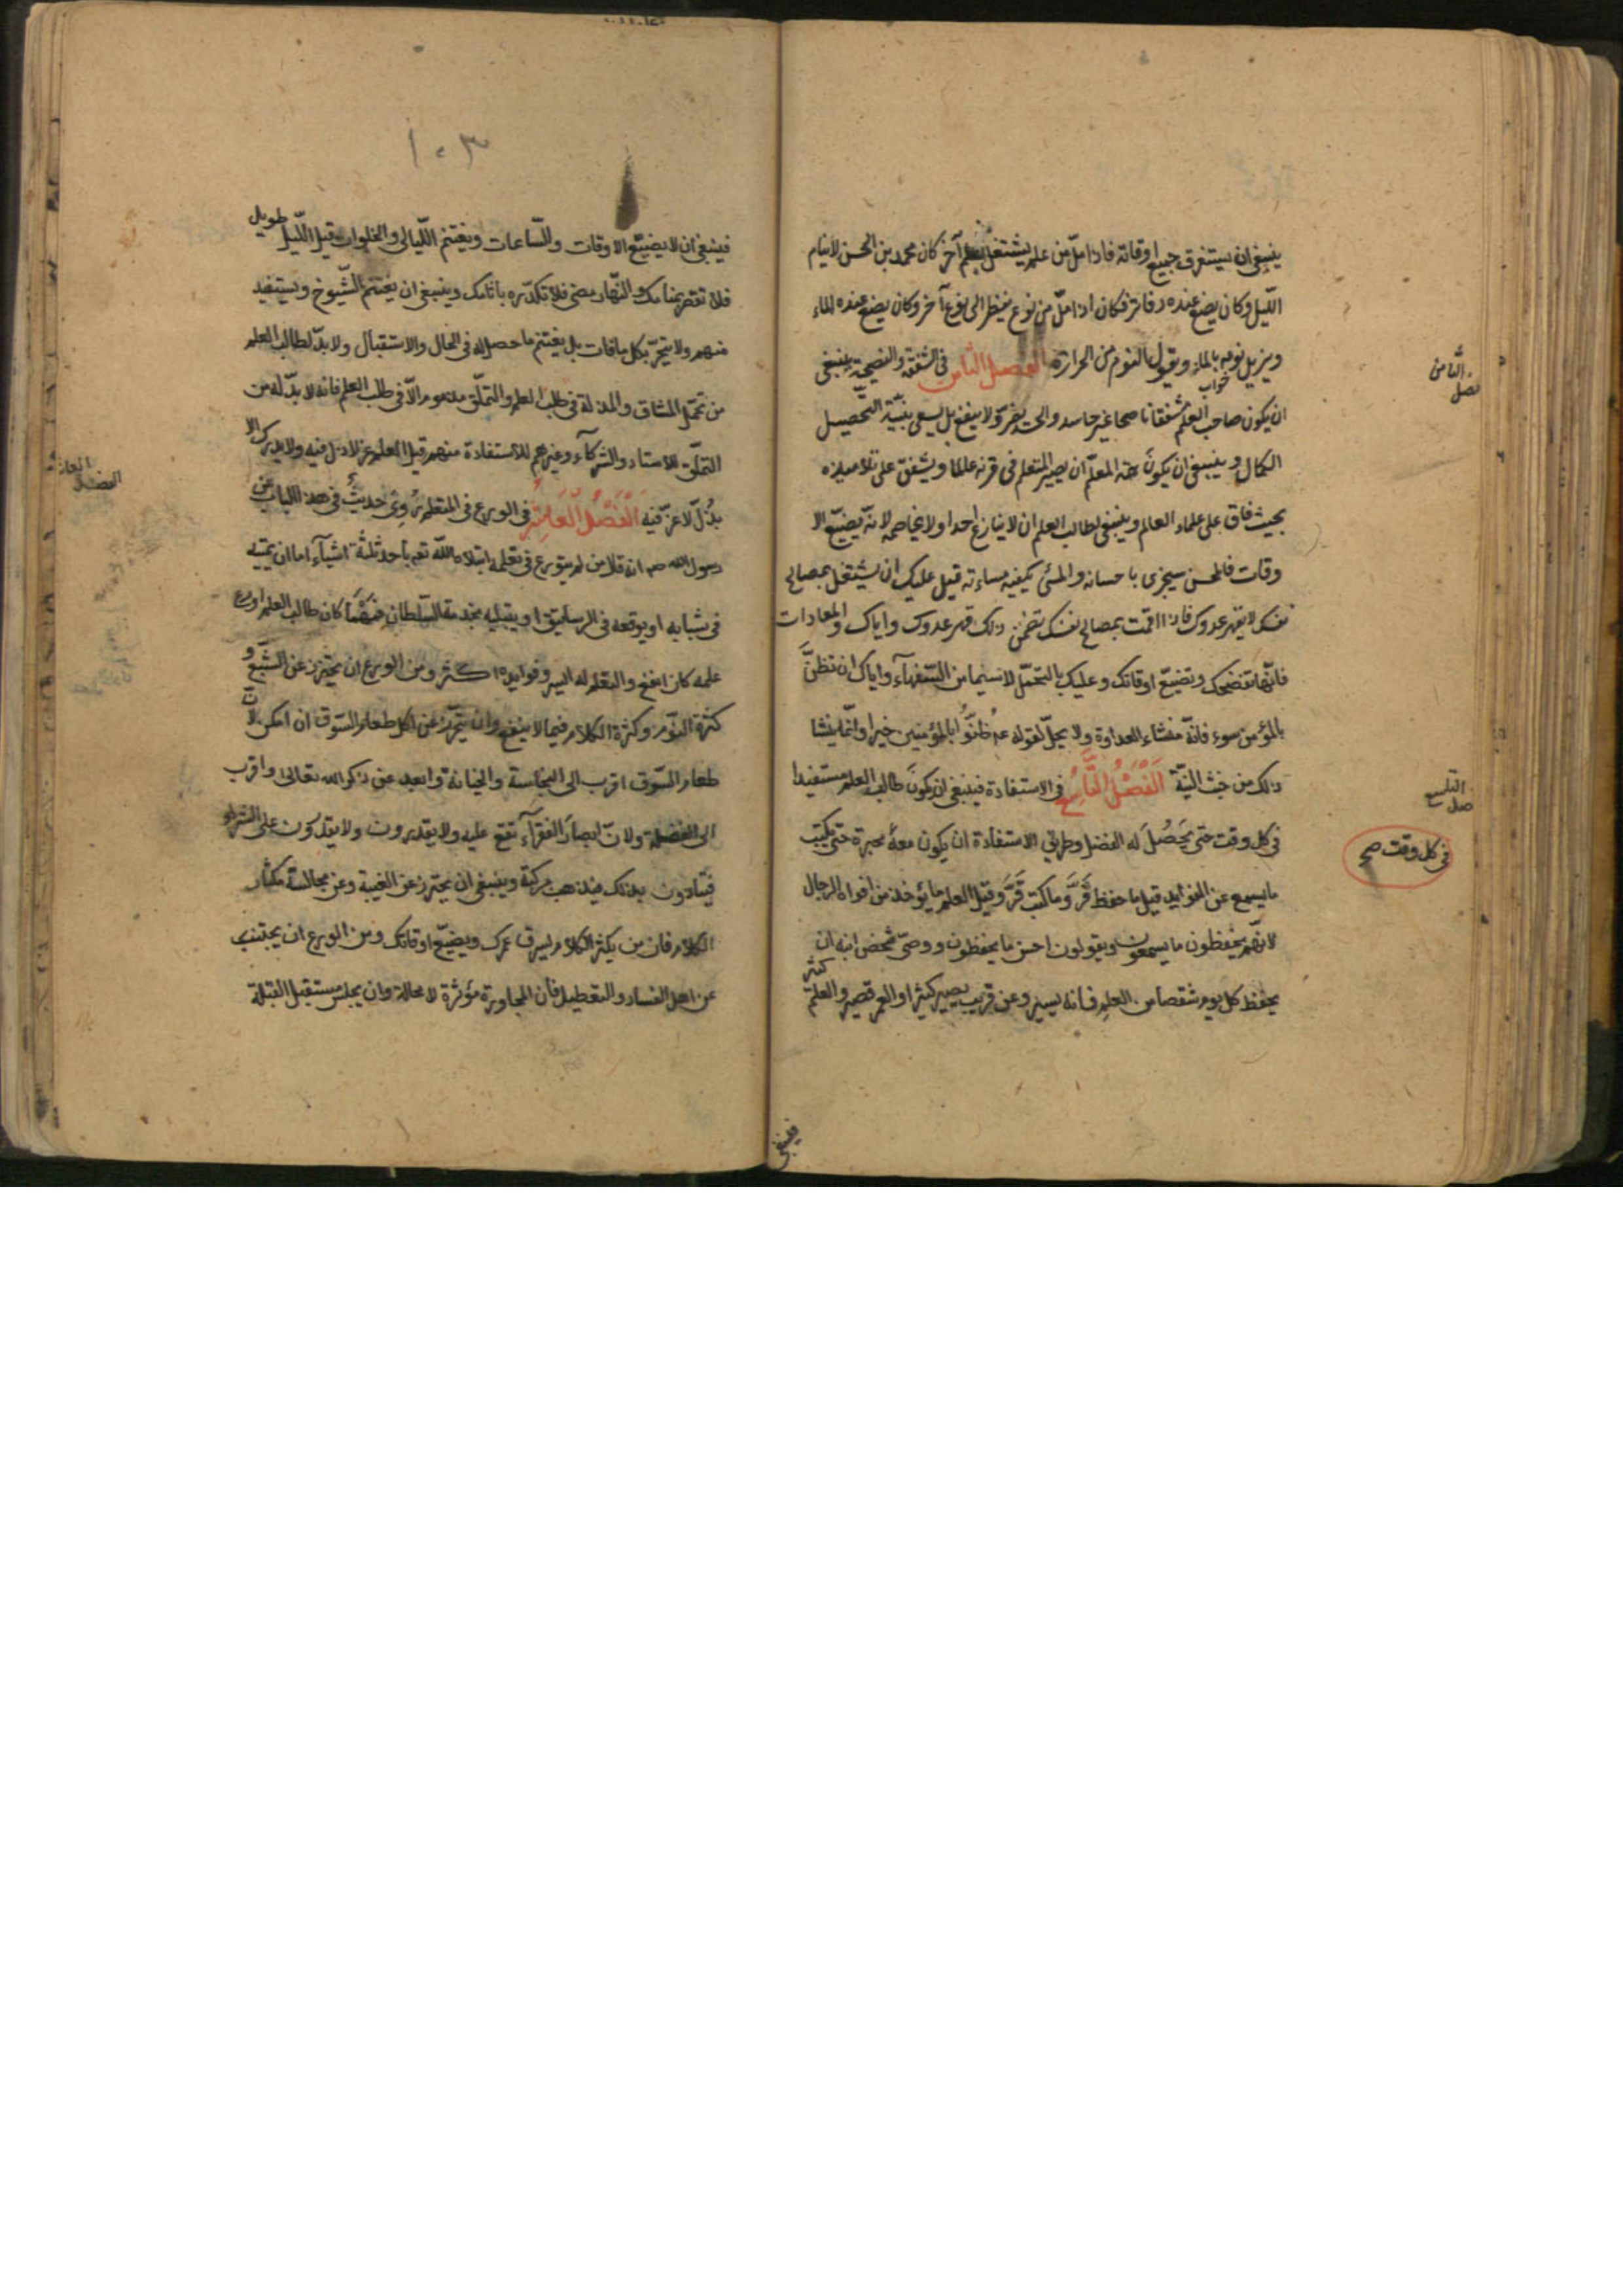 ينبغى ان يستغرق جميع اوقاته فاذا ملّ من علم يشتغل بعلم آخر كان محمد بن الحسن لاينام
الليل وكان يضع عنده دفاتر فكان اذا ملّ من نوع ينظر الى نوع آخر وكان يضع عنده الماء
ويزيل نومه بالماء ويقول النوم من الحرارة الفصل الثامن فى الشفقة والنصيحة ينبغى
خواب
ان يكون صاحب العلم مشفقا ناصحا غير حاسد والحسد يضرّ ولا ينفع بل يسعى بنيّة التّحصيل
الكمال و ينبغى ان يكون همّة المعلّم ان يصير المتعلم فى قرنه عالما ويشفق على تلاميذه
بحيث فاق على علماء العالم وينبغى لطالب العلم ان لا ينازع احدا ولا يخاصمه لانّه يضيّع الا
وقات فالمحسن سيجزى باحسانه والمسئ يكفيه مساءته قيل عليك ان يشتغل بمصالح
نفسك لا بقهر عدوك فاذا اقمت بمصالح نفسك تضمن ذلك قهر عدوك واياك والمعادات
فانّها تفضحك وتضيّع اوقاتك وعليك بالتحمّل لاسيما من السّفهاء واياك ان تظنّ
بالمؤمن سوء فانّه منشاء العداوة ولا يحلّ لقوله عم ظنّوا بالمؤمنين خيرا وانّما ينشا
ذلك من خبث النيّة اَلْفَصْلُ التَّاسِعُ فى الاستفادة فينبغى ان يكون طالب العلم مستفيدا
فى كل وقت حتى يَحَصُلَ له الفضل وطريق الاستفادة ان يكون معهُ محبرة حتى يكتب
ما يسمع عن الفوايد قيل ما حفظ فَرَّ وما كتب قَرَّ وقيل العلم ما يؤخذ من افواه الرجال
لانّهم يحفظون ما يسمعون ويقولون احسن ما يحفظون ووصّى شخص ابنه ان
يحفظ كل يوم شقصا من العلم فانه يسير وعن قريب يصير كثيرا والعمر قصير والعلم
كثير
الثّامن
فصل
التاسع
فصل
فى كل وقت صح
فينبغى
١٠٣
فينبغى ان لا يضيّع الاوقات والسّاعات ويغتنم اللّيالى والخلوات قيل اللّيل طويل
فلا تقصر بمنامك والنّهار مضئ فلا تكدّره باثامك وينبغى ان يغتنم الشّيوخ ويستفيد
منهم ولا يتحرّ بكل ما فات بل يغتنم ما حصل له فى الحال والاستقبال ولا بدّ لطالب العلم
من تحمّل المشاق والمذلة فى طلب العلم والتملّق مذموم الّا فى طلب العلم فانه لا بدّ له من
التملّق للاستاد والشركآء وغيرهم للاستفادة منهم قيل العلم عز لا ذل فيه ولا يدرك الا
بذُلّ لا عزّ فيه اَلْفَصْلُ الْعَاشِرُ فى الورع فى المتعلم رُوِىَ حديثٌ فى هذا الباب عن
رسول الله صم انه قال من لم يتورع فى تعلمه ابتلاه اللّه تعم باحد ثلثة اشيآء اما ان يميته
فى شبابه او يوقعه فى الرساتيق او يبتليه بخدمة السّلطان فمهما كان طالب العلم اورع
علمه كان انفع والتعلم له ايسر وفوايده اكثر ومن الورع ان يحترز عن الشّبع و
كثرة النّوم وكثرة الكلام فيما لا ينفع وان يتحرّز عن اكل طعام السّوق ان امكن لانّ
طعام السّوق اقرب الى النجاسة والخيانة وابعد عن ذكر الله تعالى واقرب
الى الغفلة ولانّ ابصار الفقرآء تقع عليه ولا يقدرون ولا يقدرون على الشراء
فيتأذون بذلك فيذهب بركته وينبغى ان يحترز عن الغيبة وعن مجالسة مكثار
الكلام فان من يكثر الكلام يسرق عمرك ويضيّع اوقاتك ومن الورع ان يجتنب
عن اهل الفساد والتعطيل فان المجاورة مؤثرة لا محالة وان يجلس مستقبل القبلة
الفصل العاشر